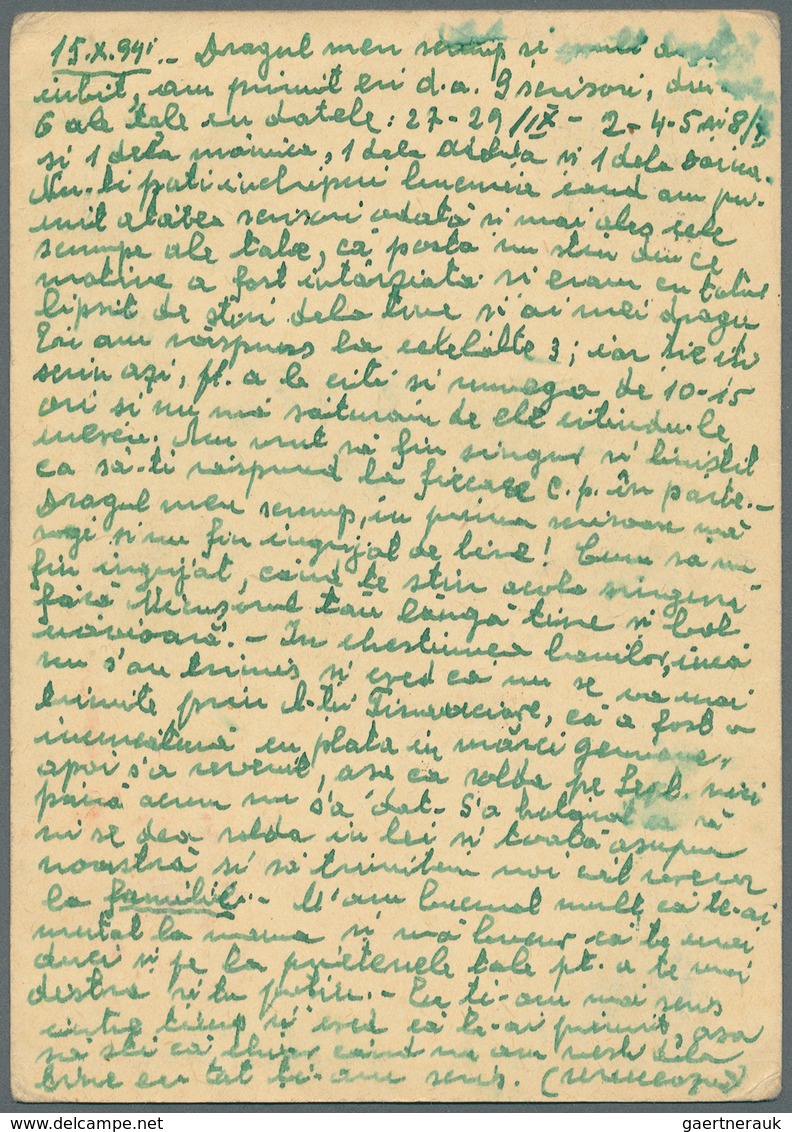 15.X.941.- Dragul meu scump si
iubit, am primit eri d.a. 9 scrisori, din
6 ale tale cu datele: 27-29/IX - 2-4-5 si 8/X
si 1 dela mămica, 1 dela si 1 dela
Nu-ti poti inchipui bucuria cand am pri-
mit atâtea scrisori odată si mai ales cele
scumpe ale tale, că posta nu stiu din ce
motive a fost intârziata si eram cu totul
lipsit de stiri dela tine si ai mei dragi
Eri am răspuns la celelalte 3; iar tie iti
scriu azi, pt. a le citi si de 10-15
ori si nu mă saturam de ele citindu-le
mereu. Am vrut să fiu singur si linistit
ca să-ti răspund la fiecare c.p. în parte.-
Dragul meu scump, in prima scrisoare mă
rogi si nu fiu ingrijat de tine! Cum să nu
fiu ingrijat, când te stiu acolo singură
fără tău lângă tine si bol-
năvioară.- In chestiunea banilor, incă
nu s'au trimis si cred că nu se va mai
trimite prin că a fost o
incurcătură cu plata in mărci germane,
apoi s'a revenit, asa ca solda pe Sept. nici
până acum nu s'a dat. S'a hotarat ca să
ni se dea solda in lei si toată asupra
noastră si să trimitem noi cât vrem
la familie.- M'am bucurat mult că te-ai
mutat la mama si mă bucur că te mai
duci si pe la prietenele tale pt. a te mai
distra si tu putin.- Eu ti-am mai scris
intre timp si cred că le-ai primit, asa
să stii că chiar când nu am vesti dela
tine eu tot ti-am scris. (
gaertnerauk